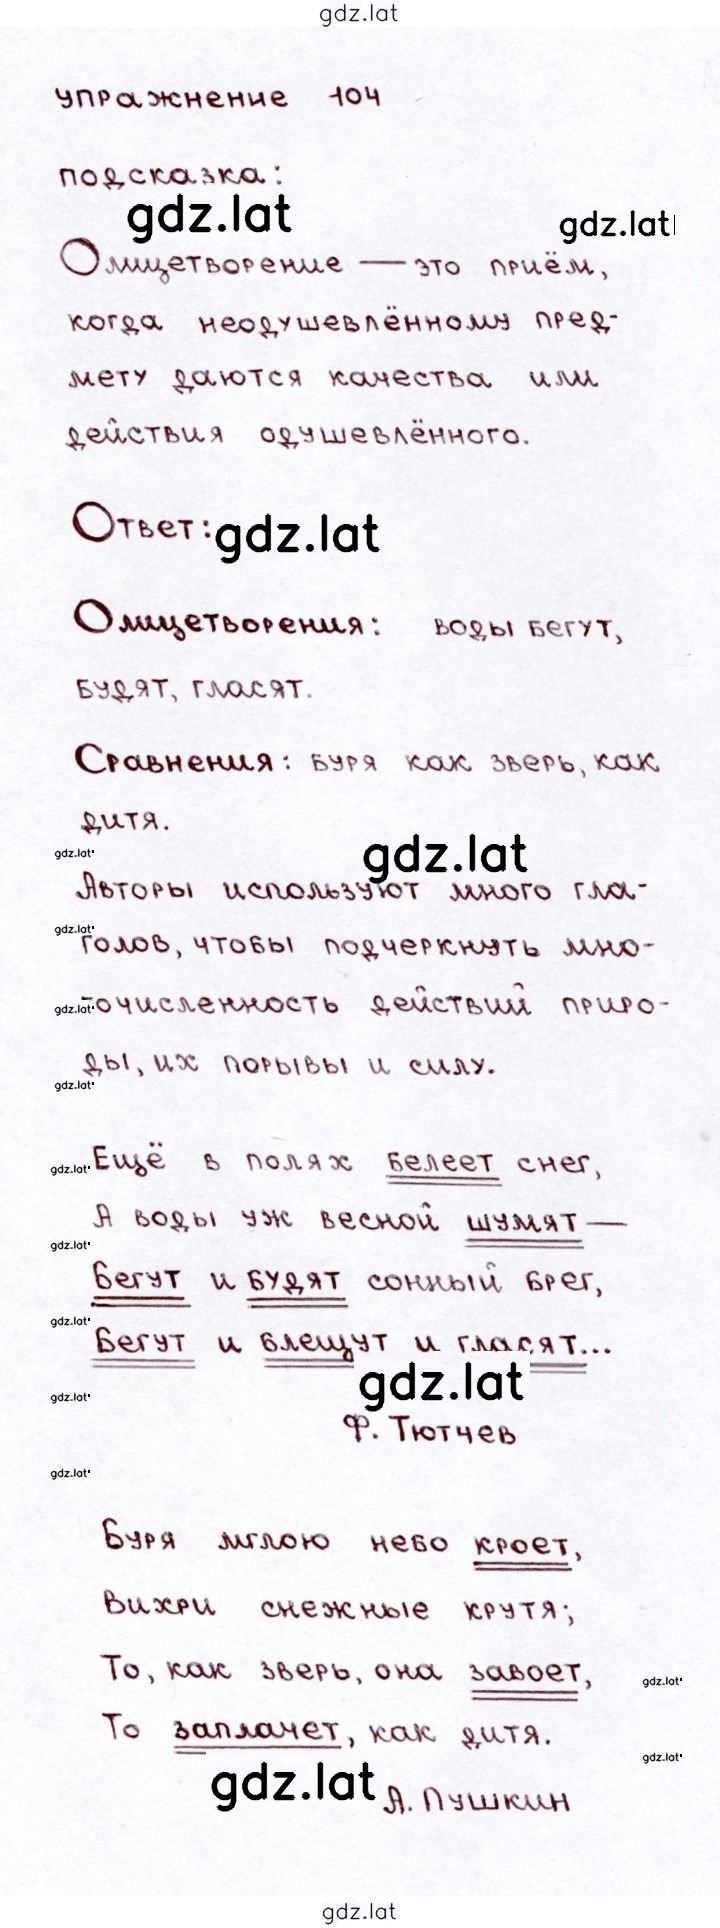 gdz.lat
упражнение 104
подсказка:
gdz.lat
gdz.lat
Олицетворение — это приём,
когда неодушевлённому пред-
мету даются качества или
действия одушевлённого.
Ответ:
gdz.lat
Олицетворения: воды бегут,
будят, гласят.
Сравнения: буря как зверь, как
дитя.
gdz.lat
gdz.lat
Авторы используют много гла-
gdz.lat
голов, чтобы подчеркнуть мно-
gdz.lat
гочисленность действий приро-
ды, их порывы и силу.
gdz.lat
Ещё в полях белеет снег,
gdz.lat
А воды уж весной шумят —
gdz.lat
Бегут и будят сонный брег,
gdz.lat
Бегут и блещут и гласят...
gdz.lat
gdz.lat
Ф. Тютчев
gdz.lat
Буря мглою небо кроет,
Вихри снежные крутя;
То, как зверь, она завоет,
gdz.lat
То заплачет, как дитя.
gdz.lat
gdz.lat
А. Пушкин
gdz.lat